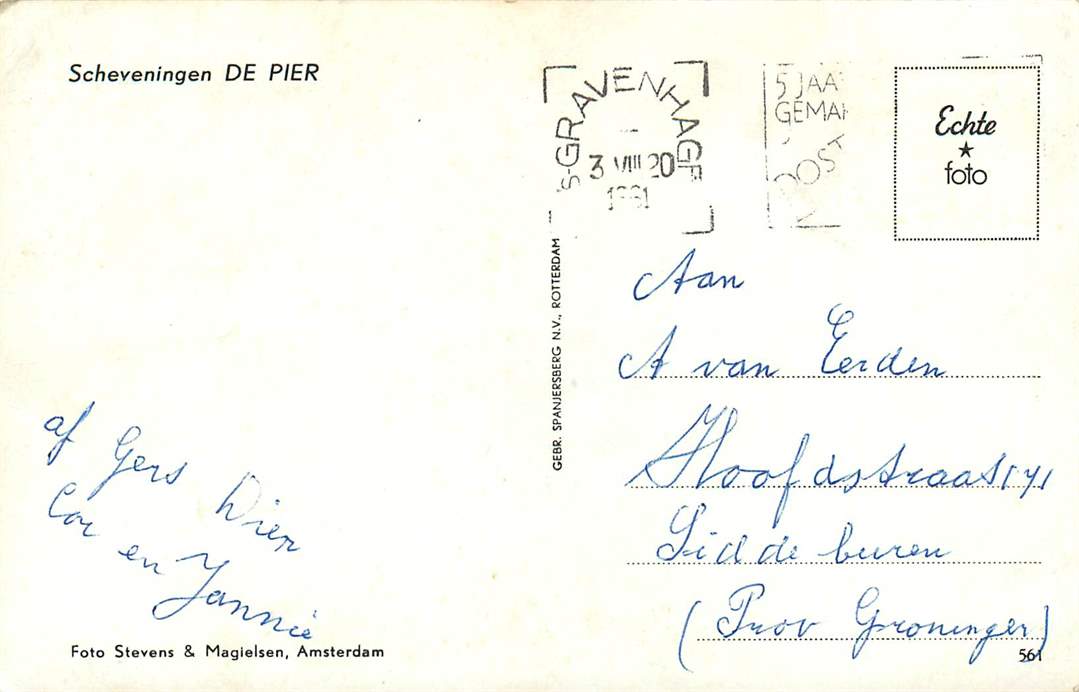 Scheveningen DE PIER
's-GRAVENHAGE
3 VIII 20
1961
5 JAA
GEMA
POST
Echte
foto
GEBR. SPANJERSBERG N.V., ROTTERDAM
Aan
A van Eerden
Hoofdstraat 171
Siddeburen
(Prov Groningen)
af Gers Dien
Cor en Jannie
Foto Stevens & Magielsen, Amsterdam
561